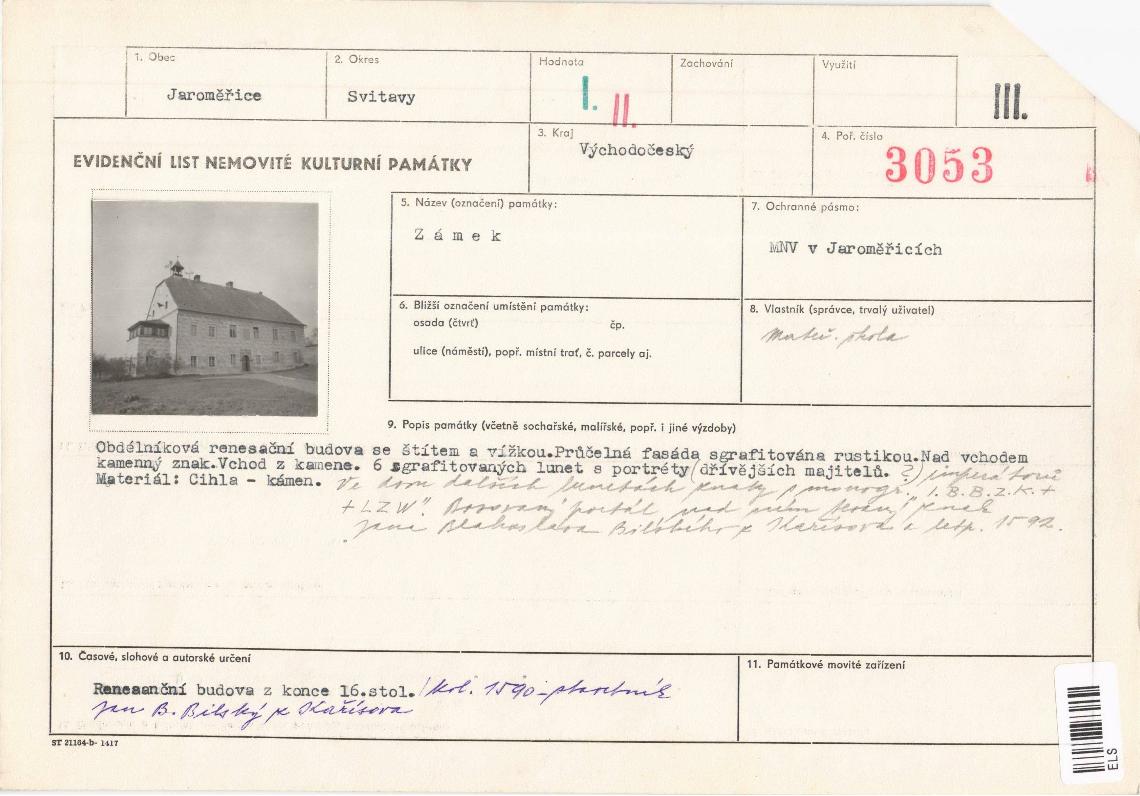 1. Obec
Jaroměřice
2. Okres
Svitavy
Hodnota
I.
II.
Zachování
Využití
III.
EVIDENČNÍ LIST NEMOVITÉ KULTURNÍ PAMÁTKY
3. Kraj
Východočeský
4. Poř. číslo
3053
5. Název (označení) památky:
Zámek
7. Ochranné pásmo:
MNV v Jaroměřicích
6. Bližší označení umístění památky:
osada (čtvrť) čp.
ulice (náměstí), popř. místní trať, č. parcely aj.
8. Vlastník (správce, trvalý uživatel)
Mateř. škola
9. Popis památky (včetně sochařské, malířské, popř. i jiné výzdoby)
Obdélníková renesační budova se štítem a vížkou.Průčelná fasáda sgrafitována rustikou.Nad vchodem
kamenný znak.Vchod z kamene. 6 sgrafitovaných lunet s portréty (dřívějších majitelů. ?) imperátorů
Materiál: Cihla - kámen. Ve dvou dalších lunetách znaky s monogr. „I.B.B.z.K. +
+ LZW". Bosovaný portál nad ním tesaný znak
Jana Blahoslava Bílského z Kařišova a letp. 1592.
10. Časové, slohové a autorské určení
Renesanční budova z konce 16.stol. /kol. 1590 - stavebník
Jan B. Bílský z Kařišova
11. Památkové movité zařízení
ST 21164-b- 1417
ELS